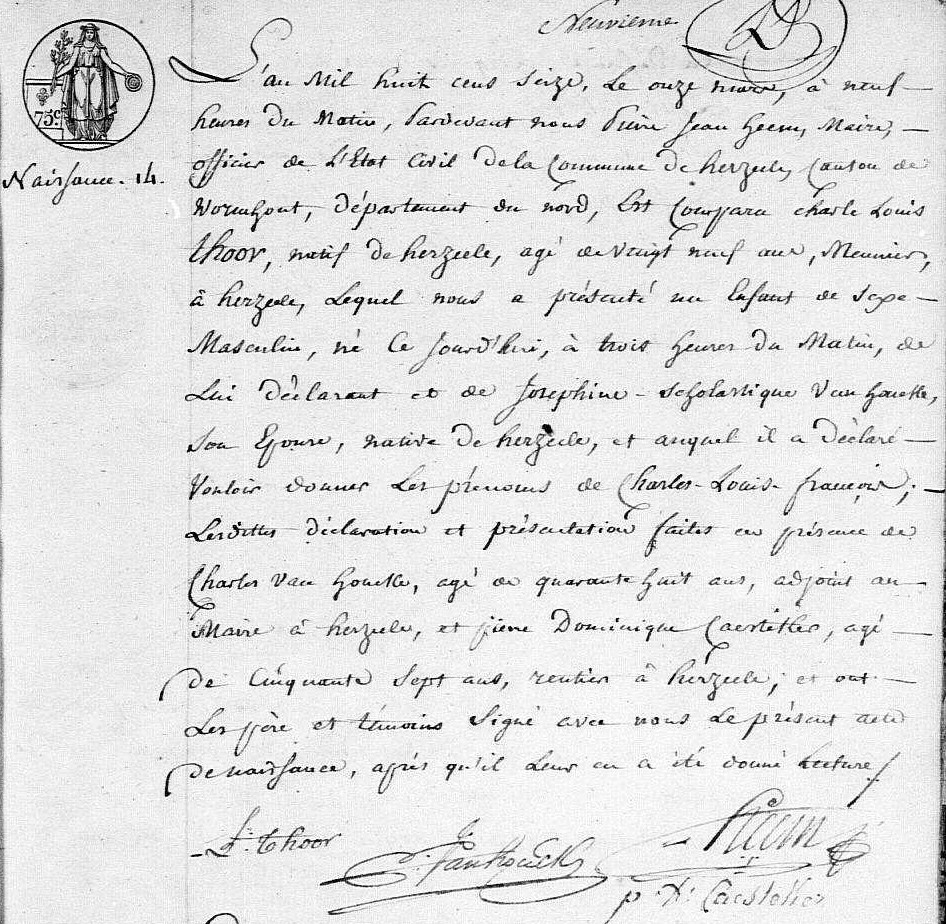 Neuvieme
75c
Naissance. 14.
L'an Mil huit cens Seize, Le onze mars, à neuf
heures du Matin, Pardevant nous Pierre Jean heem, Maire,
officier de L'Etat Civil de la Commune de herzeele, Canton de
Wormhout, département du nord, Est Comparu Charle Louis
thoor, natif de herzeele, agé de vingt neuf ans, Meunier,
à herzeele, Lequel nous a présenté un Enfant de Sexe
Masculin, né Ce Jourd'hui, à trois heures du Matin, de
Lui déclarant et de Josephine-Scholastique Van houcke,
Son Epouse, native de herzeele, et auquel il a déclaré
Vouloir donner Les prénoms de Charles-Louis-françois;
Lesdittes déclaration et présentation faites en présence de
Charles Van houcke, agé de quarante huit ans, adjoint au
Maire à herzeele, et pierre Dominique Caesteker, agé
de Cinquante Sept ans, rentier à herzeele; et ont
Les père et témoins Signé avec nous Le présent acte
de naissance, après qu'il Leur en a été donné Lecture
L. thoor
p D. Caesteker